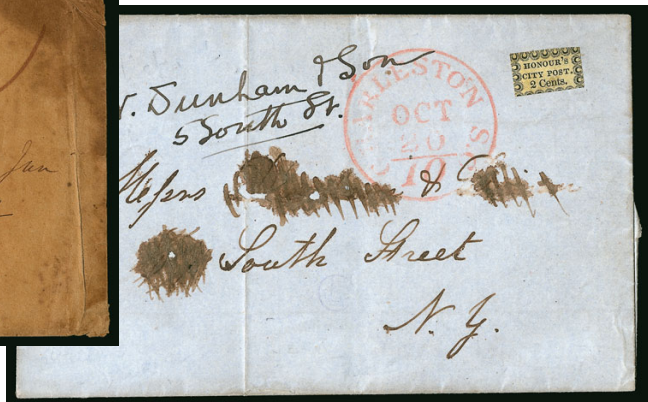 V. Dunham & Son
5 South St.
CHARLESTON S.C.
OCT
20
10
HONOUR'S
CITY POST.
2 Cents.
Messrs & Co
South Street
N. Y.
Jan